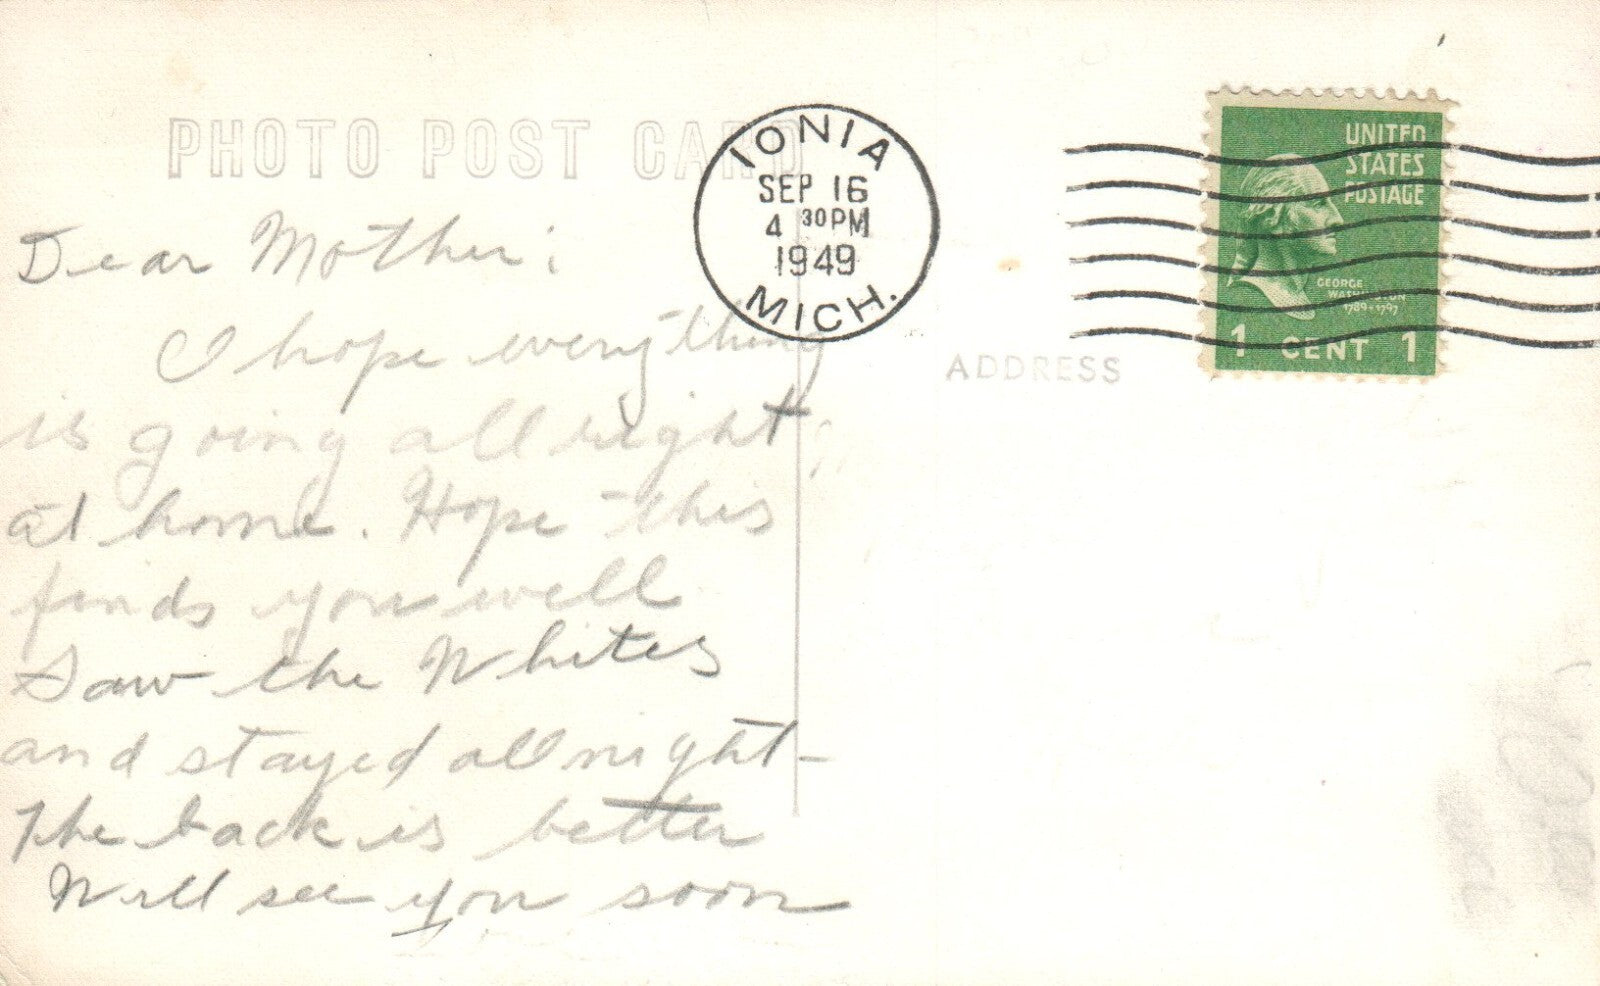 PHOTO POST CARD
IONIA
SEP 16
4 30PM
1949
MICH.
UNITED
STATES
POSTAGE
GEORGE
WASHINGTON
1789-1797
1 CENT 1
ADDRESS
Dear Mother:
I hope everything
is going all right
at home. Hope this
finds you well
Saw the Whites
and stayed all night-
The back is better
Will see you soon